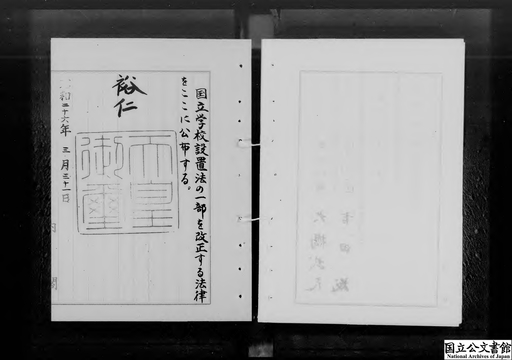 国立学校設置法の一部を改正する法律
をここに公布する。
裕仁
天皇
御璽
昭和三十六年三月三十一日
内閣
国立公文書館
National Archives of Japan